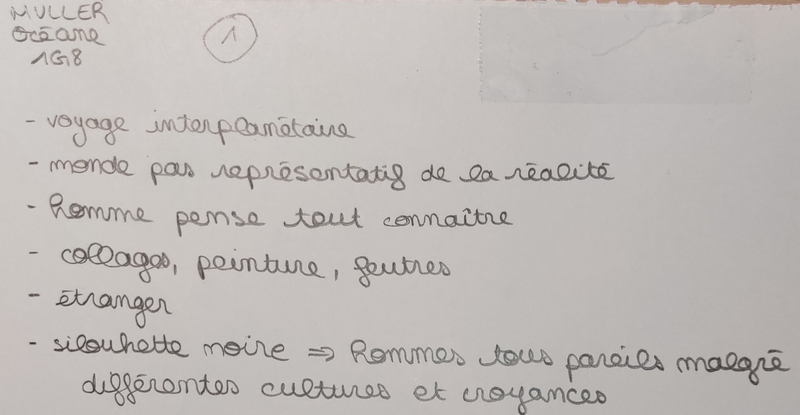 MULLER
Océane
1G8
1
- voyage interplanétaire
- monde pas représentatif de la réalité
- homme pense tout connaître
- collages, peinture, feutres
- étranger
- silouhette noire => hommes tous pareils malgré
différentes cultures et croyances